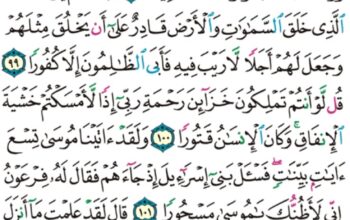 الَّذِي خَلَقَ السَّمَوَاتِ وَالْأَرْضَ قَادِرٌ عَلَىٰ أَن يَخْلُقَ مِثْلَهُمْ
وَجَعَلَ لَهُمْ أَجَلًا لَّا رَيْبَ فِيهِ فَأَبَى الظَّالِمُونَ إِلَّا كُفُورًا ٩٩
قُل لَّوْ أَنتُمْ تَمْلِكُونَ خَزَائِنَ رَحْمَةِ رَبِّي إِذًا لَّأَمْسَكْتُمْ خَشْيَةَ
الْإِنفَاقِ ۚ وَكَانَ الْإِنسَانُ قَتُورًا ١٠٠ وَلَقَدْ ءَاتَيْنَا مُوسَىٰ تِسْعَ
ءَايَاتٍ بَيِّنَاتٍ ۖ فَسْـَٔلْ بَنِي إِسْرَٰٓءِيلَ إِذْ جَاءَهُمْ فَقَالَ لَهُ فِرْعَوْنُ
إِنِّي لَأَظُنُّكَ يَا مُوسَىٰ مَسْحُورًا ١٠١ قَالَ لَقَدْ عَلِمْتَ مَا أَنزَلَ